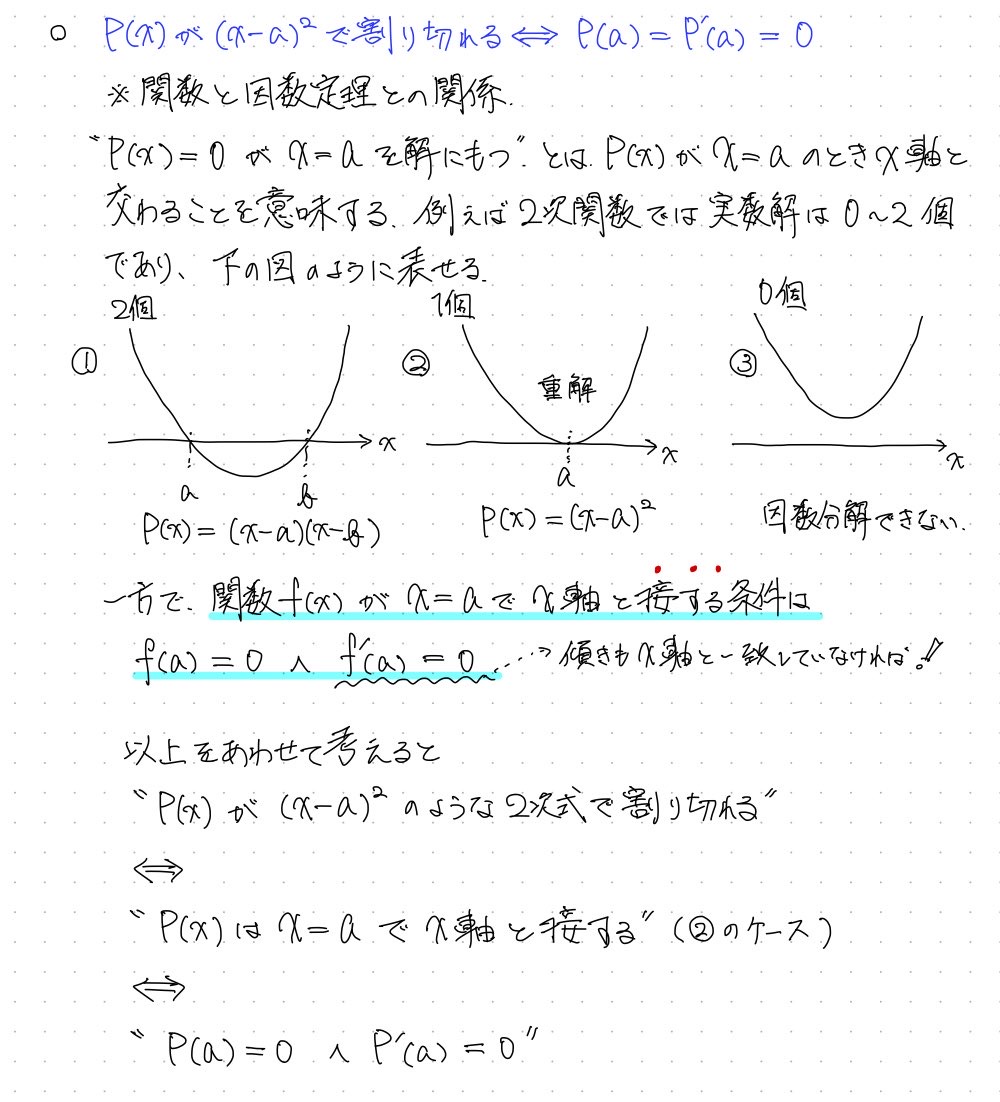 ○ P(x) が (x-a)² で割り切れる ⟺ P(a) = P'(a) = 0
※ 関数と因数定理との関係.
“P(x) = 0 が x = a を解にもつ” とは P(x) が x = a のとき x 軸と
交わることを意味する. 例えば 2次関数では実数解は 0～2 個
であり、下の図のように表せる.
2個 1個 0個
① ② 重解 ③
x x x
a b a
P(x) = (x-a)(x-b) P(x) = (x-a)² 因数分解できない.
一方で. 関数 f(x) が x = a で x 軸と接する条件は
f(a) = 0 ∧ f'(a) = 0 ····> 傾きも x 軸と一致していなければ!!
以上をあわせて考えると
“P(x) が (x-a)² のような 2次式で割り切れる”
⟺
“P(x) は x = a で x 軸と接する” (②のケース)
⟺
“P(a) = 0 ∧ P'(a) = 0”